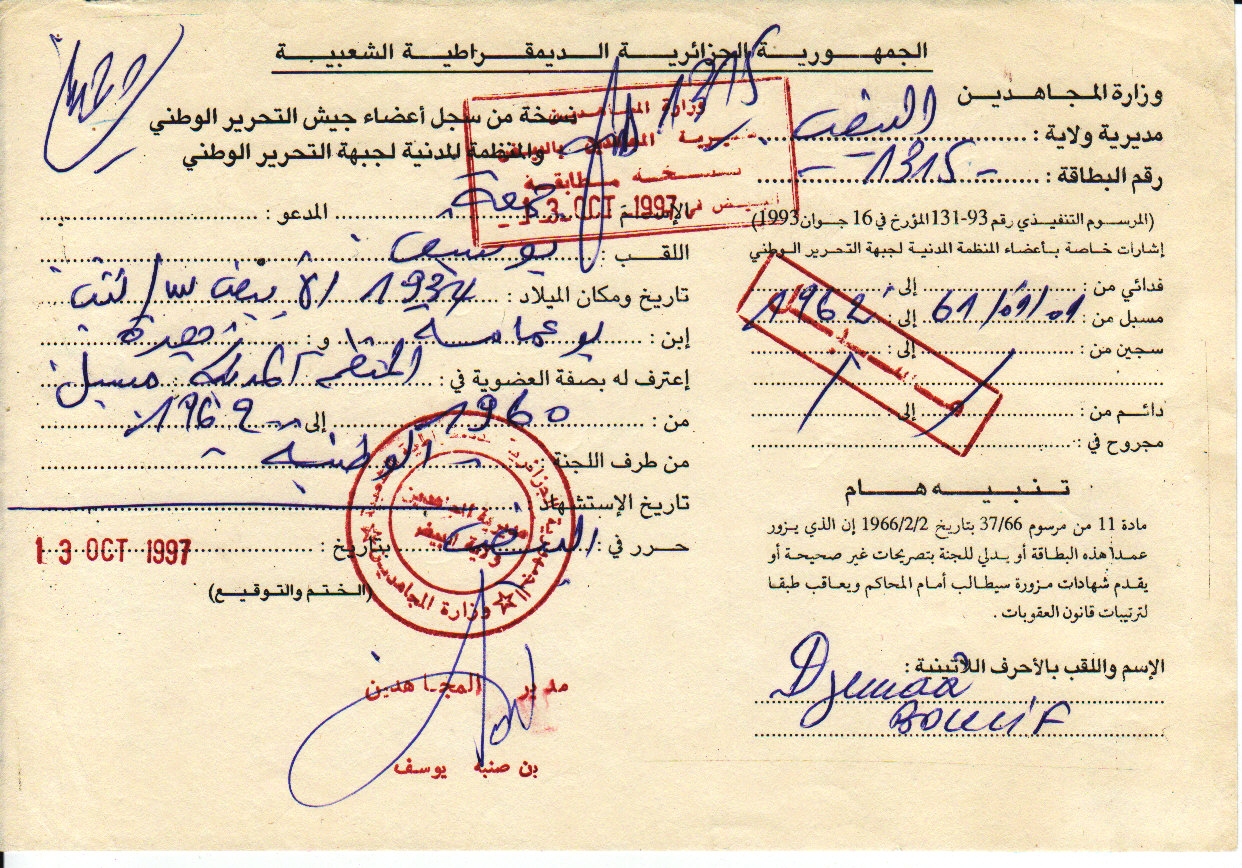 الجمهورية الجزائرية الديمقراطية الشعبية
وزارة المجاهدين
مديرية ولاية : البيض
رقم البطاقة : - 1315 -
(المرسوم التنفيذي رقم 93-131 المؤرخ في 16 جوان 1993)
إشارات خاصة بأعضاء المنظمة المدنية لجبهة التحرير الوطني
فدائي من : إلى
مسبل من : 61/09/01 إلى : 1962
سجين من : إلى :
دائم من : إلى
مجروح في :
تنبيه هام
مادة 11 من مرسوم 37/66 بتاريخ 1966/2/2 إن الذي يزور
عمدا هذه البطاقة أو يدلي للجنة بتصريحات غير صحيحة أو
يقدم شهادات مزورة سيطالب أمام المحاكم ويعاقب طبقا
لترتيبات قانون العقوبات .
الإسم واللقب بالأحرف اللاتينية :
Djemaa
BOUCIF
1315
نسخة من سجل أعضاء جيش التحرير الوطني
والمنظمة المدنية لجبهة التحرير الوطني
وزارة المجاهدين
مديرية المجاهدين بالبيض
نسخة مطابقة
البيض في
13 OCT 1997
الإسم جمعة المدعو :
اللقب : بوسيف
تاريخ ومكان الميلاد : 1934 الأبيض س/
إبن : بوعمامة و :
إعترف له بصفة العضوية في : المنظمة المدنية مسبل
من : 1960 إلى 1962
من طرف اللجنة : الوطنية
تاريخ الإستشهاد :
حرر في : البيض بتاريخ : 13 OCT 1997
(الختم والتوقيع)
وزارة المجاهدين
مديرية المجاهدين
ولاية البيض
مدير المجاهدين
بن صنبة يوسف